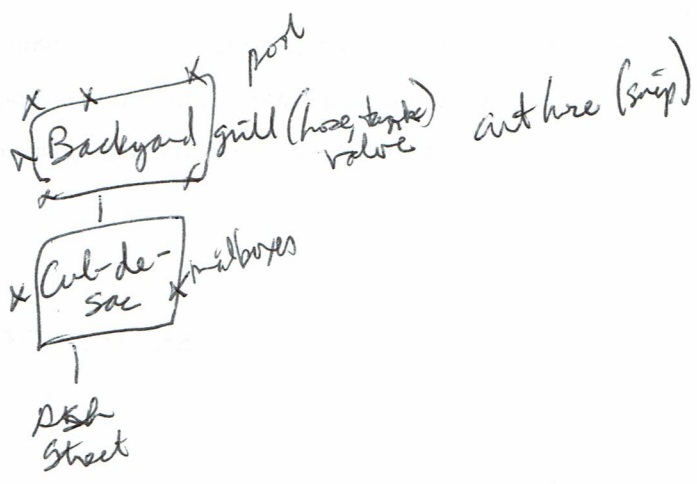 pool
Backyard grill (hose, tank
valve
cut hose (snip)
Cul-de-
sac
mailboxes
Ash
Street